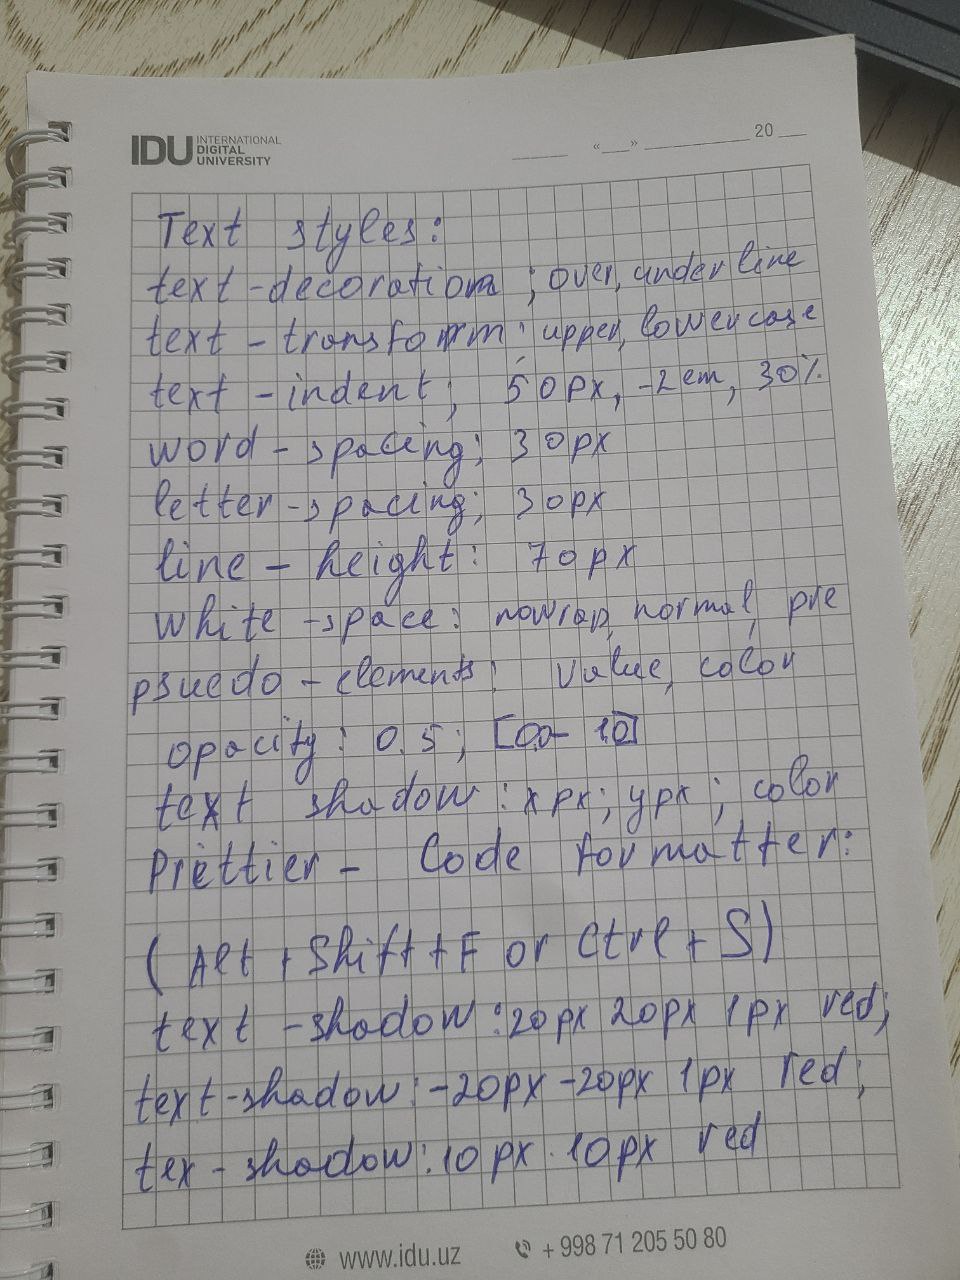 IDU INTERNATIONAL
DIGITAL
UNIVERSITY
«___» 20
Text styles:
text-decoration ; over, underline
text - transform : upper, lowercase
text - indent; 50px, -2em, 30%
word - spacing; 30px
letter-spacing; 30px
line - height: 70px
white-space: nowrap, normal, pre
psuedo-elements: value, color
opacity: 0.5; [0.0- 1.0]
text shadow: xpx; ypx; color
Prettier - Code formatter:
(Alt + Shift + F or Ctrl + S)
text -shadow: 20px 20px 1px red;
text-shadow: -20px -20px 1px red;
tex-shadow: 10px 10px red
www.idu.uz + 998 71 205 50 80